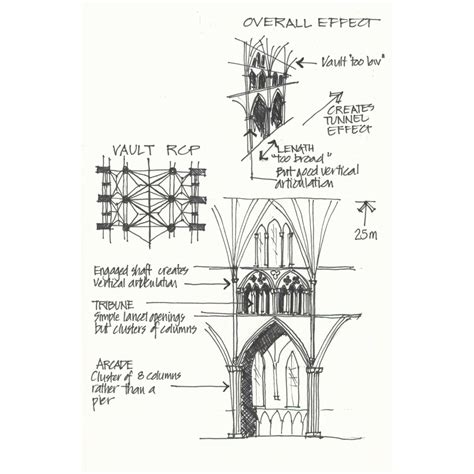 OVERALL EFFECT
Vault "too low"
CREATES
TUNNEL
EFFECT
LENGTH
"too broad"
But good vertical
articulation
VAULT RCP
25m
Engaged shaft creates
vertical articulation
TRIBUNE
Simple lancet openings
but clusters of columns
ARCADE
Cluster of 8 columns
rather than a
pier